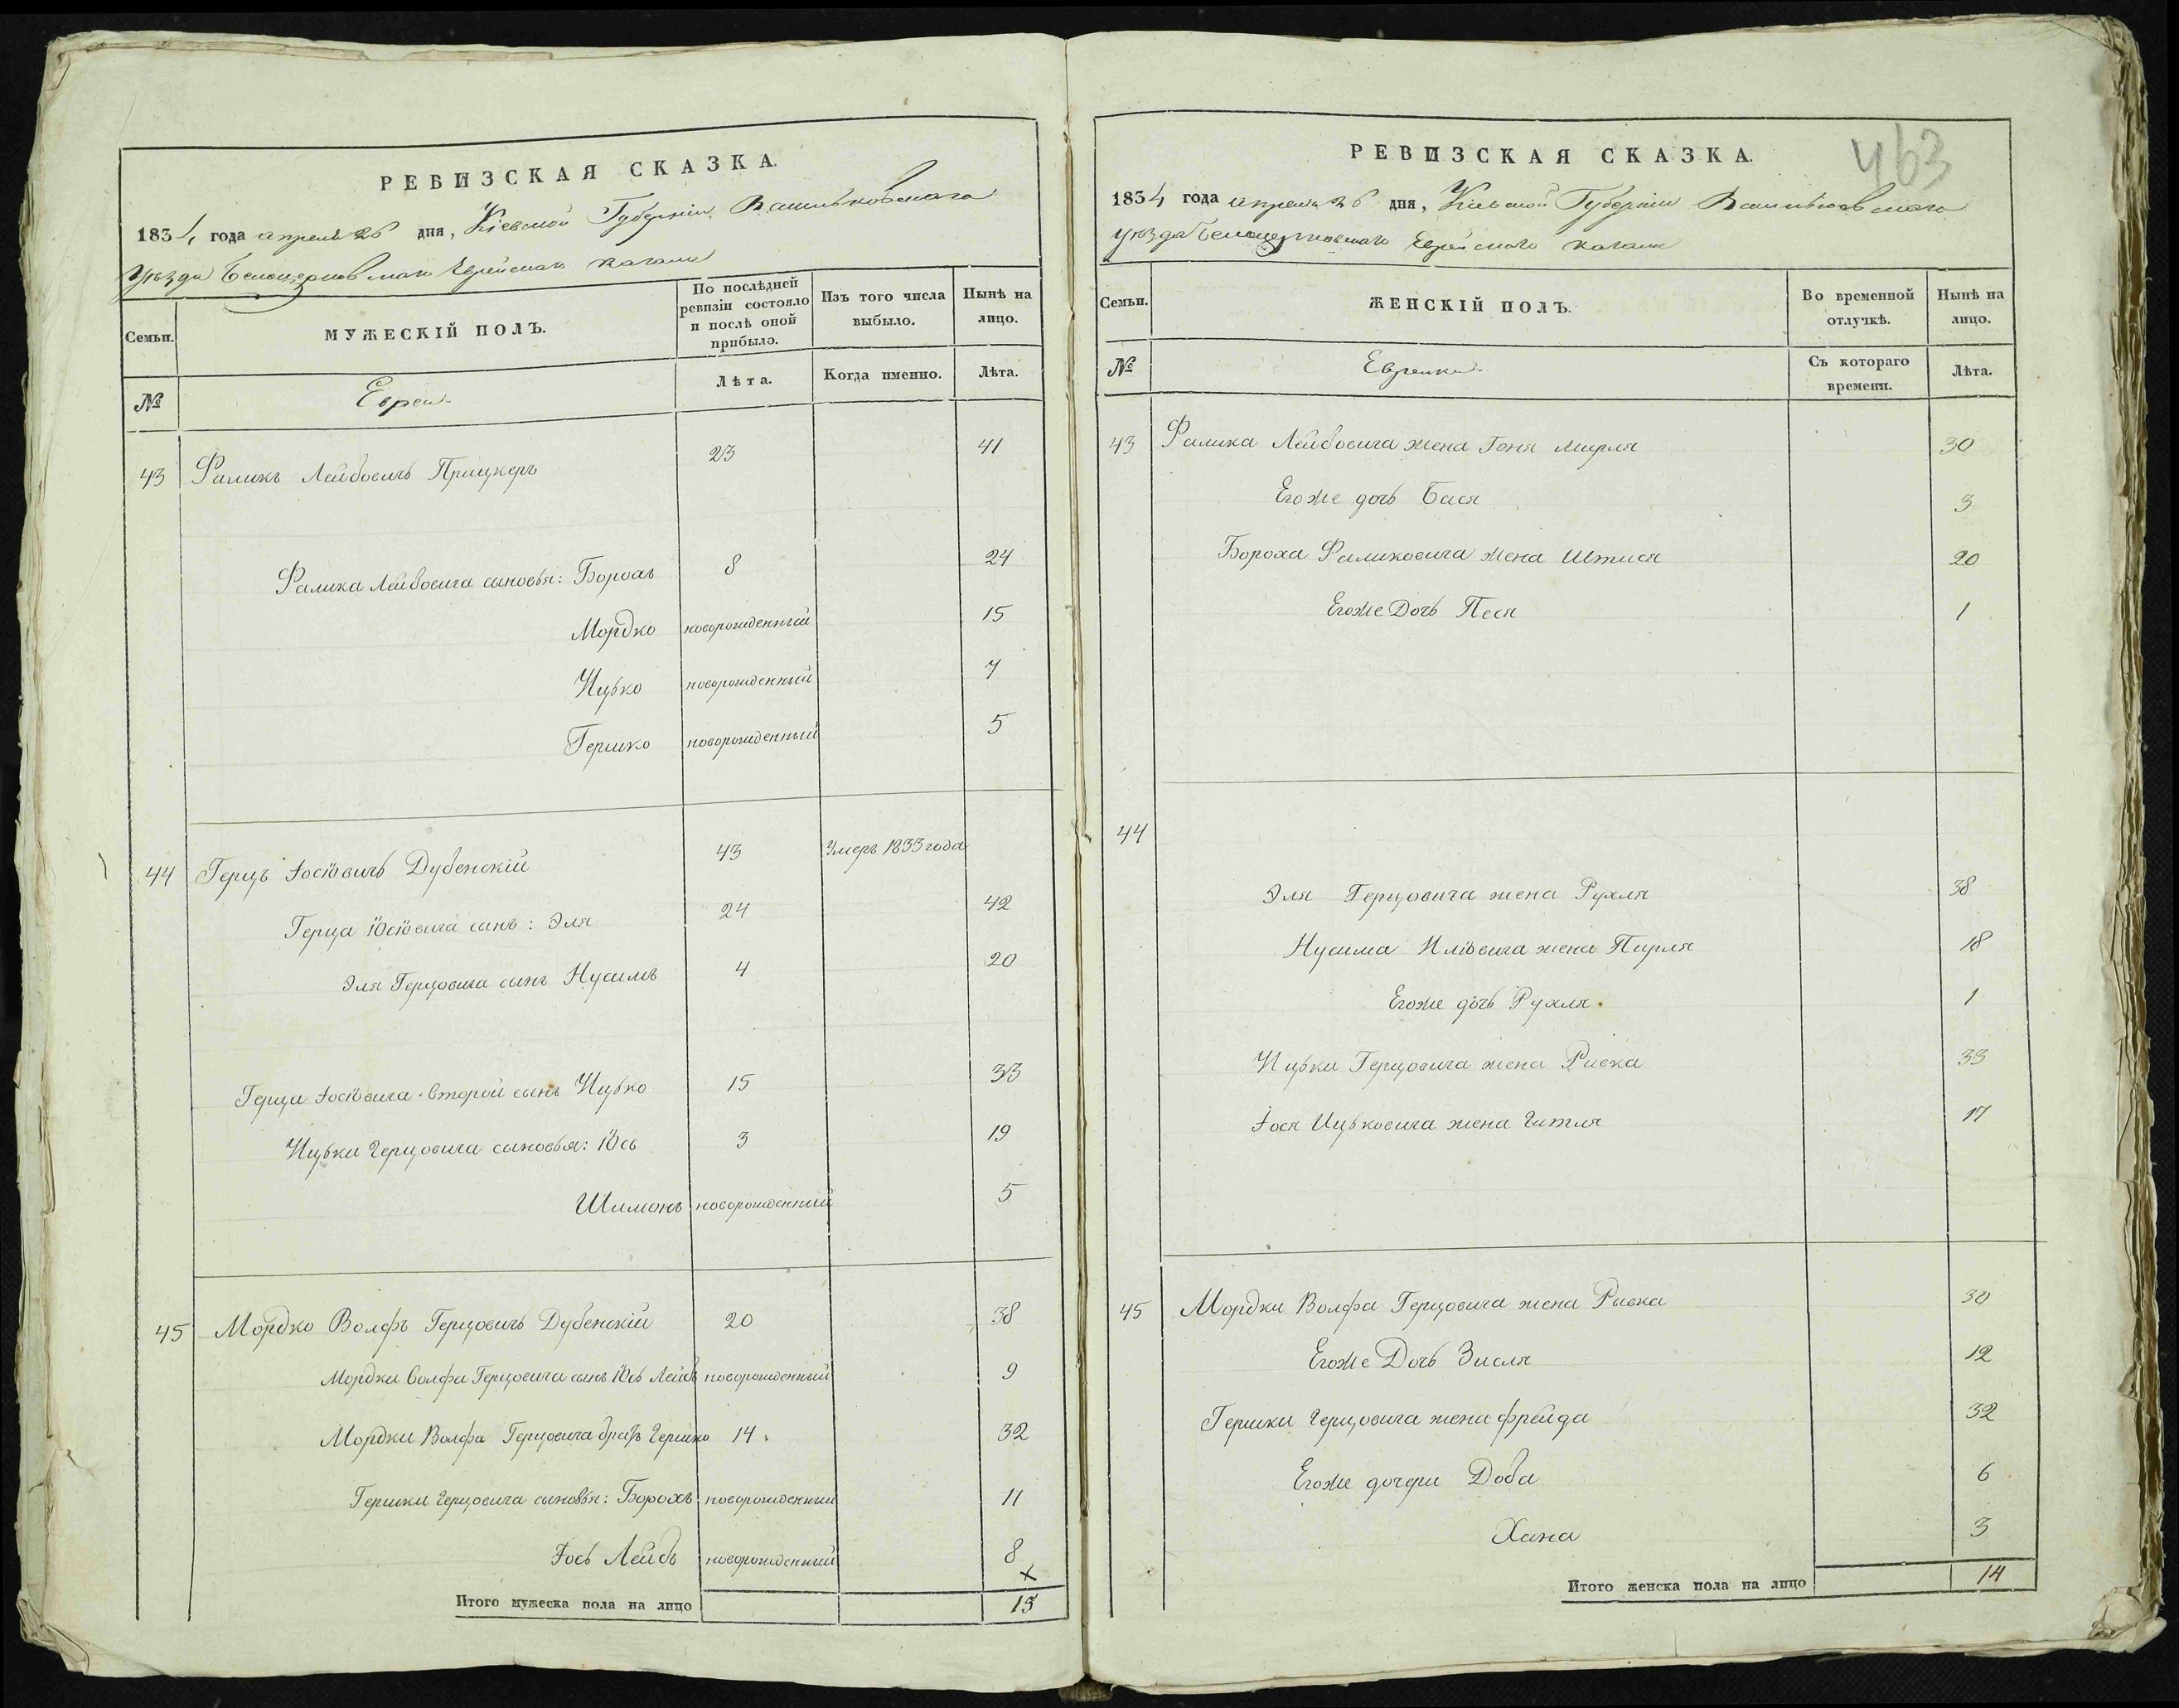 РЕВИЗСКАЯ СКАЗКА.
1834 года апреля 26 дня, Кіевской Губерніи Васильковского
Уѣзда Белоцерковского Еврейского кагала
Семьи.
МУЖЕСКІЙ ПОЛЪ.
По послѣдней ревизіи состояло и послѣ оной прибыло.
Изъ того числа выбыло.
Нынѣ на лицо.
№
Евреи
Лѣта.
Когда именно.
Лѣта.
43 Фаликъ Лейбовичъ Прицкеръ 23 41
Фалика Лейбовича сыновья: Борохъ 8 24
Мордко новорожденный 15
Ицько новорожденный 7
Гершко новорожденный 5
44 Герцъ Іосіовичъ Дубенскій 43 Умеръ 1833 года
Герца Іосіовича сынъ: Эля 24 42
Эля Герцовича сынъ Нусимъ 4 20
Герца Іосіовича второй сынъ Ицько 15 33
Ицьки Герцовича сыновья: Іось 3 19
Шимонъ новорожденный 5
45 Мордко Волфъ Герцовичъ Дубенскій 20 38
Мордки Волфа Герцовича сынъ Іось Лейбъ новорожденный 9
Мордки Волфа Герцовича братъ Гершко 14 32
Гершки Герцовича сыновья: Борохъ новорожденный 11
Іось Лейбъ новорожденный 8
×
Итого мужеска пола на лицо 15
463
РЕВИЗСКАЯ СКАЗКА.
1834 года апреля 26 дня, Кіевской Губерніи Васильковского
Уѣзда Белоцерковского Еврейского кагала
Семьи.
ЖЕНСКІЙ ПОЛЪ.
Во временной отлучкѣ.
Нынѣ на лицо.
№
Еврейки
Съ котораго времени.
Лѣта.
43 Фалика Лейбовича жена Геня Мирля 30
Егоже дочь Бася 3
Бороха Фаликовича жена 20
Егоже Дочь Песя 1
44
Эля Герцовича жена Рухля 38
Нусима Иліовича жена Пирля 18
Егоже дочь Рухля 1
Ицьки Герцовича жена Ривка 33
Іося Ицьковича жена Гитля 17
45 Мордки Волфа Герцовича жена Ривка 30
Егоже Дочь Зисля 12
Гершки Герцовича жена фрейда 32
Егоже дочери Доба 6
Хана 3
Итого женска пола на лицо 14